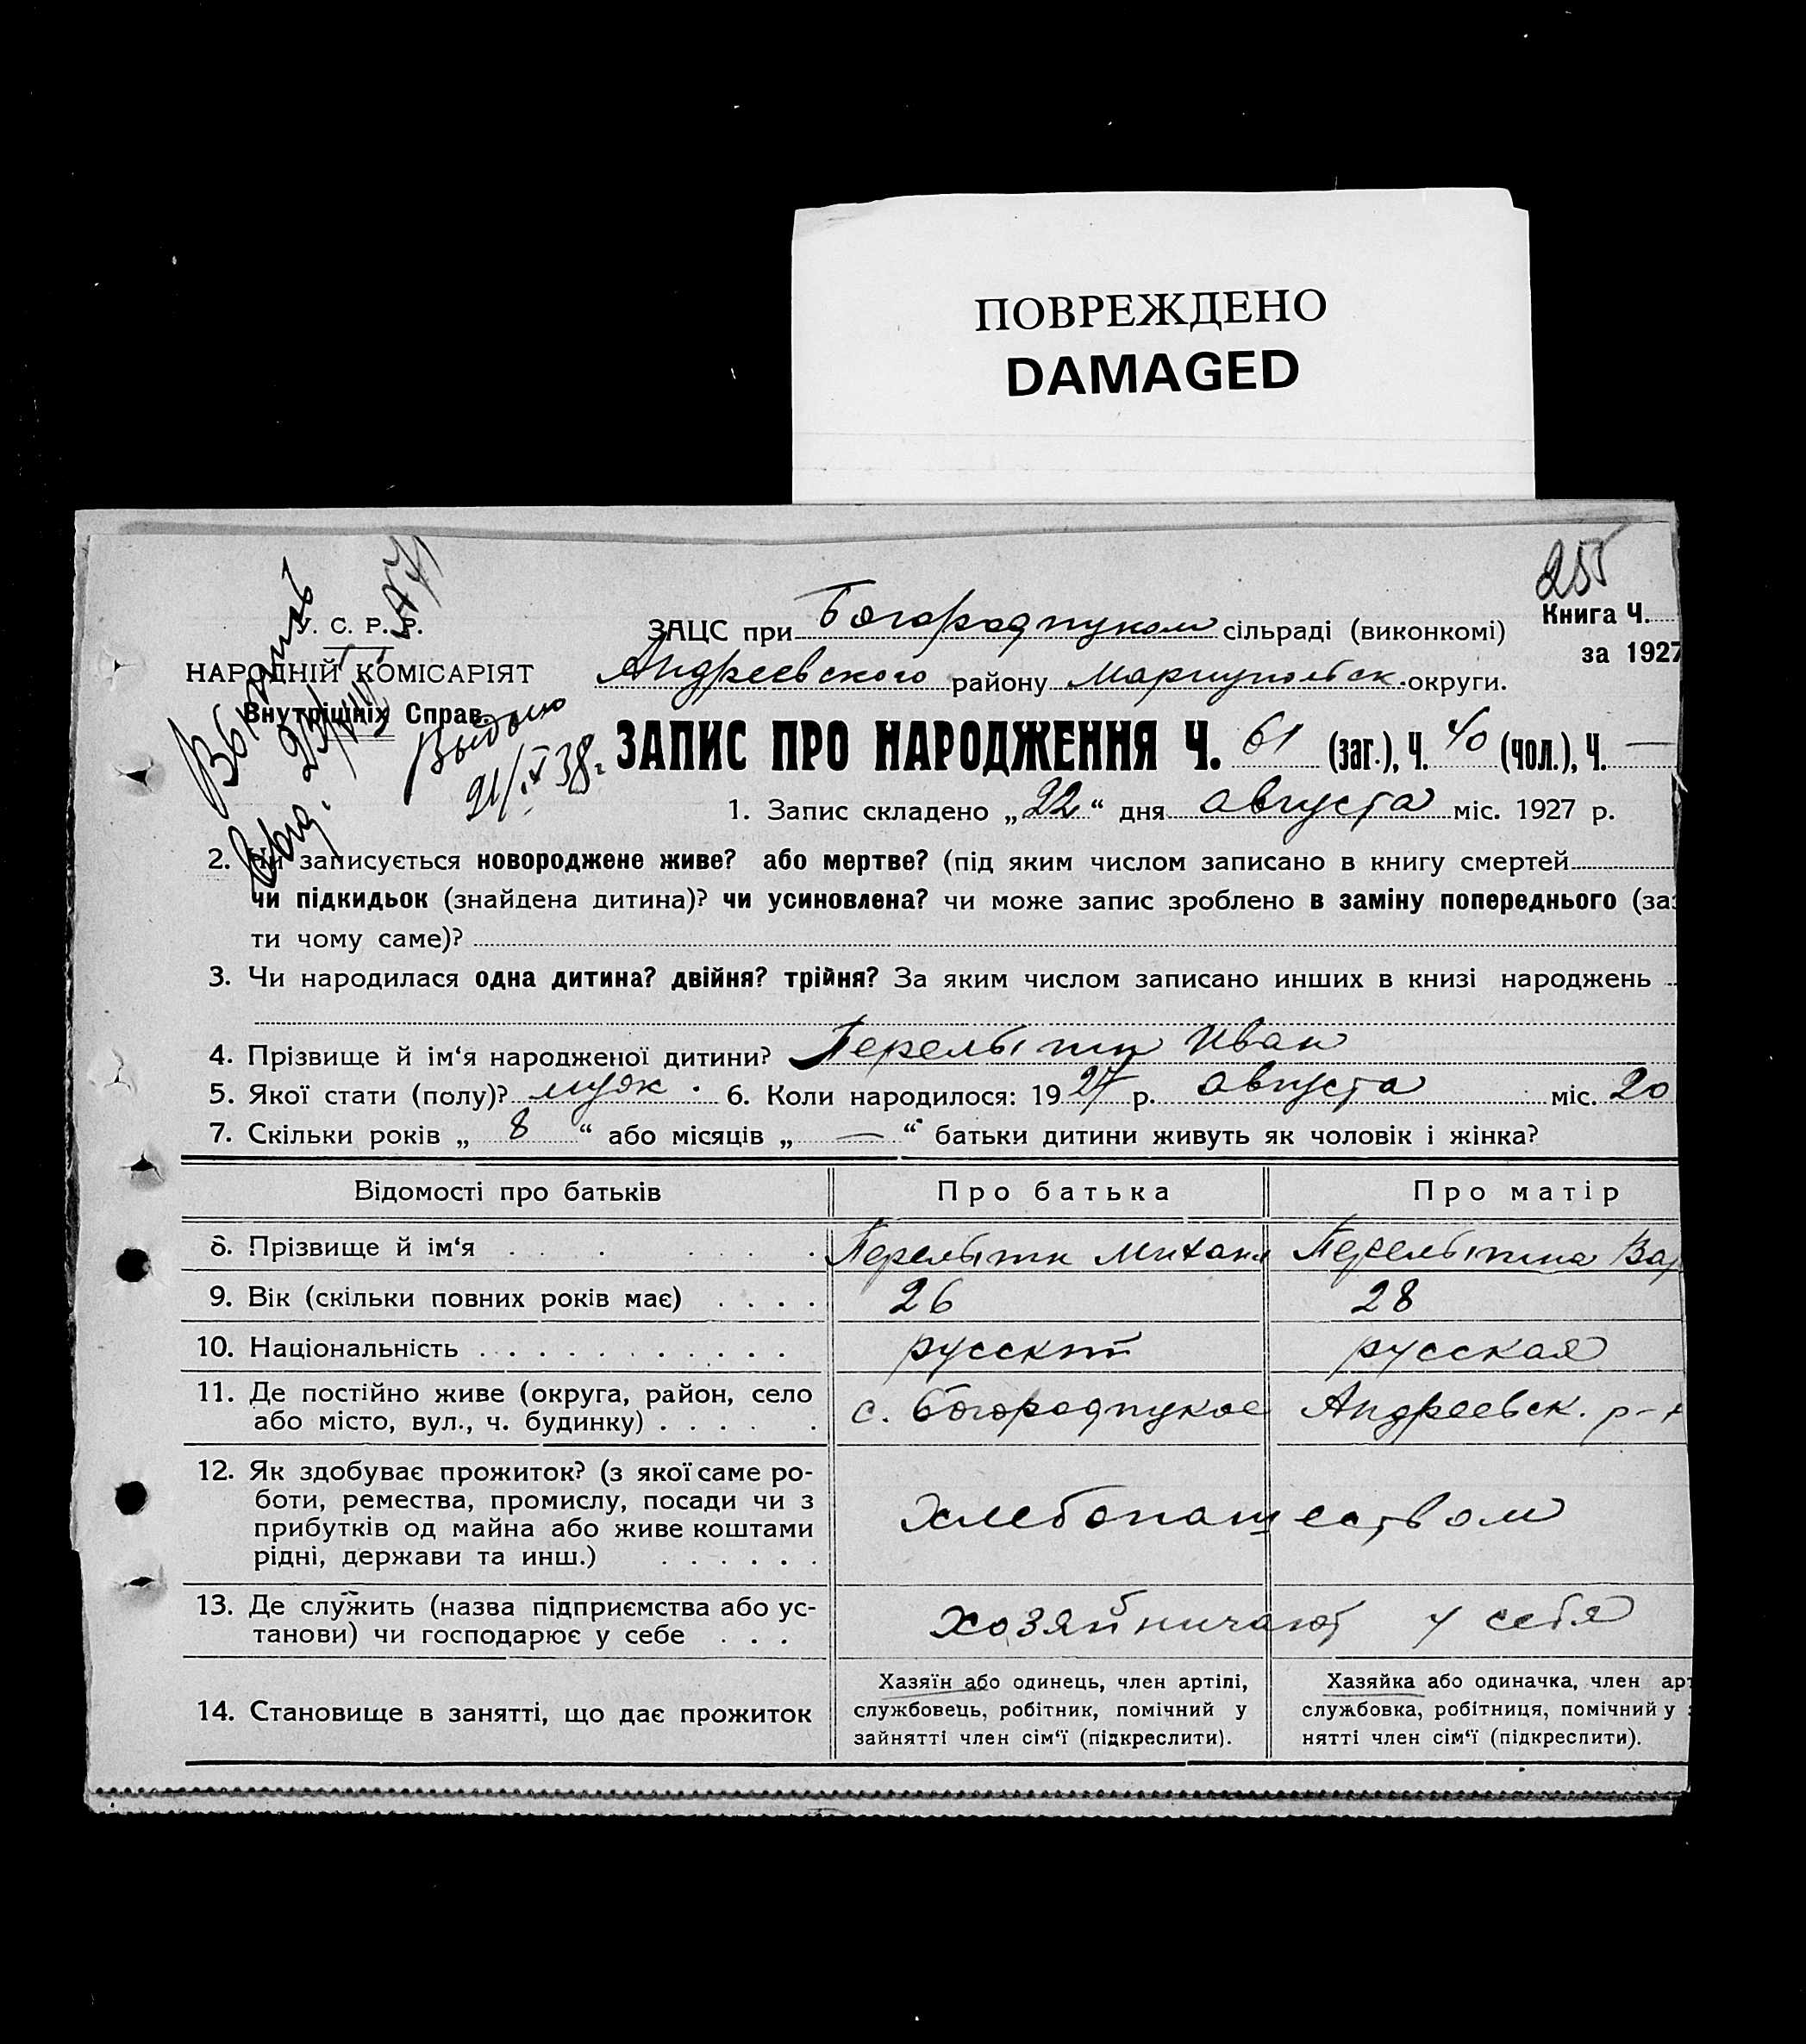 ПОВРЕЖДЕНО
DAMAGED
255
Книга Ч.
за 1927
У. С. Р. Р.
НАРОДНІЙ КОМІСАРІЯТ
Внутрішніх Справ.
Выдано
21/XI 38 г.
ЗАЦС при Богородицком сільраді (виконкомі)
Андреевского району Мариупольск. округи.
ЗАПИС ПРО НАРОДЖЕННЯ Ч. 61 (заг.), Ч. 40 (чол.), Ч. —
1. Запис складено „22“ дня августа міс. 1927 р.
2. Чи записується новороджене живе? або мертве? (під яким числом записано в книгу смертей
чи підкидьок (знайдена дитина)? чи усиновлена? чи може запис зроблено в заміну попереднього (за
ти чому саме)?
3. Чи народилася одна дитина? двійня? трійня? За яким числом записано инших в книзі народжень
4. Прізвище й ім‘я народженої дитини? Перелыгин Иван
5. Якої стати (полу)? муж. 6. Коли народилося: 1927 р. августа міс. 20
7. Скільки років „ 8 “ або місяців „ — “ батьки дитини живуть як чоловік і жінка?
Відомості про батьків Про батька Про матір
8. Прізвище й ім‘я Перелыгин Михаил Перелыгина Вар
9. Вік (скільки повних років має) 26 28
10. Національність русский русская
11. Де постійно живе (округа, район, село
або місто, вул., ч. будинку) с. Богородицкое Андреевск. р-н
12. Як здобуває прожиток? (з якої саме ро-
боти, ремества, промислу, посади чи з
прибутків од майна або живе коштами
рідні, держави та инш.) Хлебопашеством
13. Де служить (назва підприємства або ус-
танови) чи господарює у себе Хозяйничают у себя
14. Становище в занятті, що дає прожиток
Хазяїн або одинець, член артілі,
службовець, робітник, помічний у
зайнятті член сім‘ї (підкреслити).
Хазяйка або одиначка, член арт
службовка, робітниця, помічний у з
нятті член сім‘ї (підкреслити).